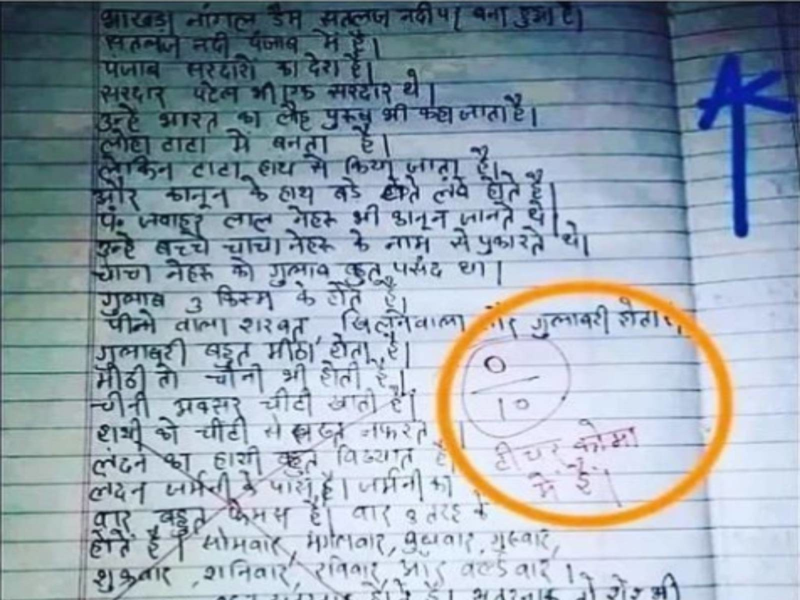 भाखड़ा नांगल डैम सतलज नदी पर बना हुआ है।
सतलज नदी पंजाब में है।
पंजाब सरदारों का देश है।
सरदार पटेल भी एक सरदार थे।
उन्हे भारत का लौह पुरुष भी कहा जाता है।
लोहा टाटा में बनता है।
लेकिन टाटा हाथ से किया जाता है।
और कानून के हाथ बडे होते लंबे होते है।
पं. जवाहर लाल नेहरू भी कानून जानते थे।
उन्हे बच्चे चाचा नेहरू के नाम से पुकारते थे।
चाचा नेहरू को गुलाब बहुत पसंद था।
गुलाब 3 किस्म के होते है।
पीन्ने वाला शरबत, खिलनेवाला और गुलाबरी होता है,
गुलाबरी बहुत मीठा होता है।
मीठी तो चीनी भी होती है।
चीनी अक्सर चींटी खाती है।
हाथी को चींटी से बहुत नफरत ।
लंदन का हाथी बहुत विख्यात है।
लंदन जर्मनी के पास है। जर्मनी का
वार बहुत फेमस है। वार 8 तरह के
होते है। सोमवार, मंगलवार, बुधवार, गुरुवार,
शुक्रवार, शनिवार, रविवार और वर्ल्डवार।
होते है। खतरनाक तो शेर भी
0
10
टीचर कोमा
में है।